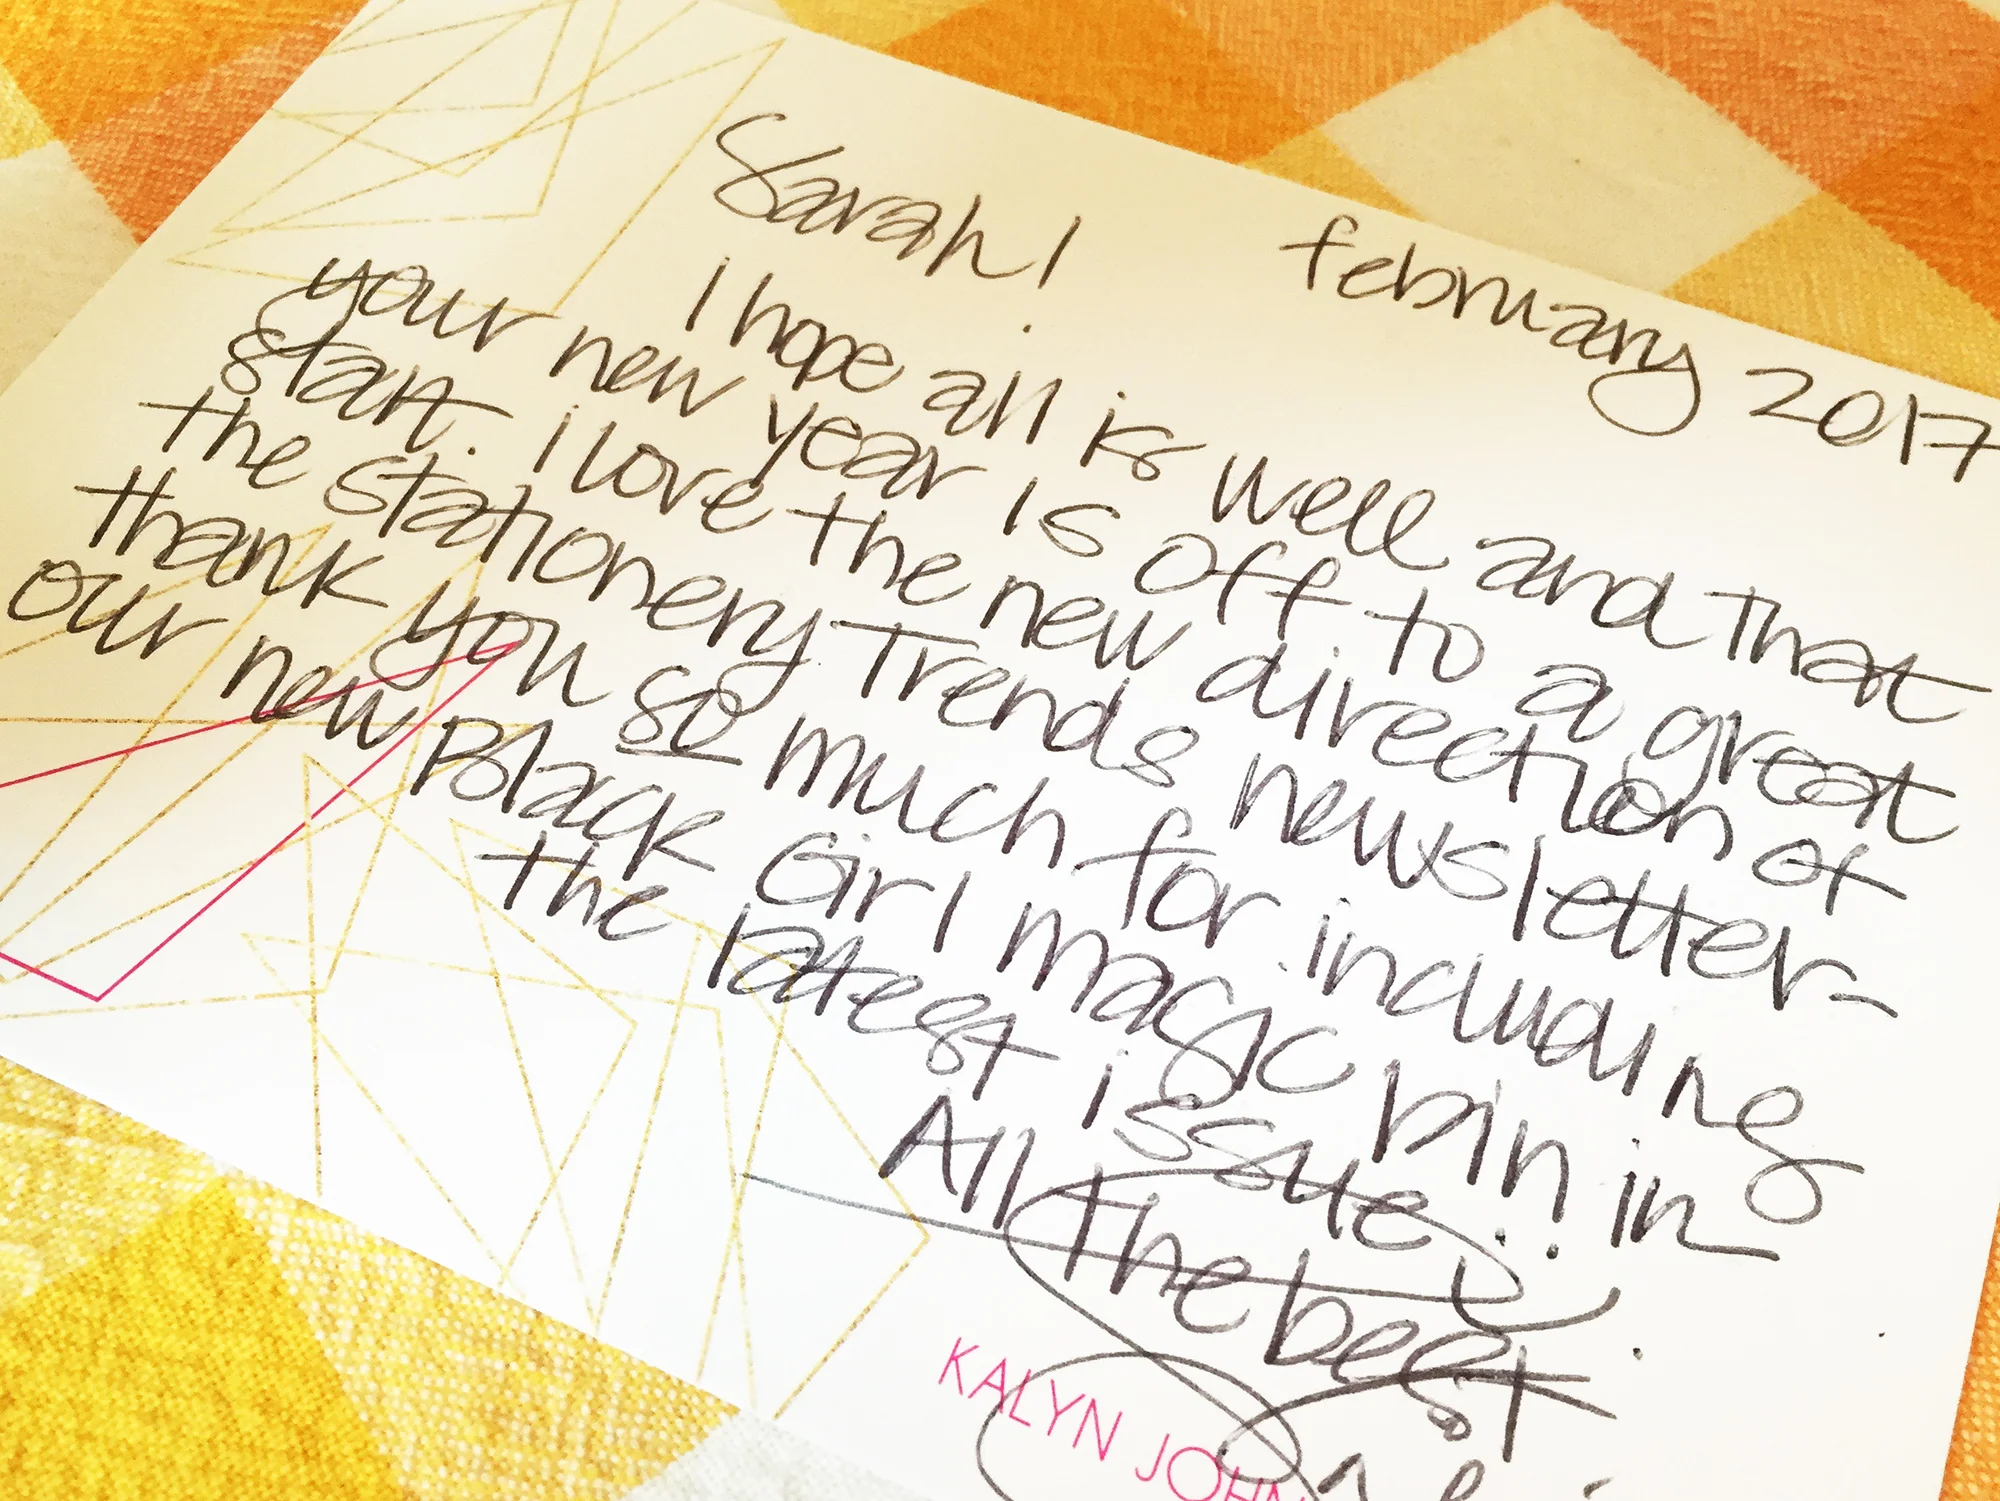 Sarah! february 2017
I hope all is well and that
your new year is off to a great
start. I love the new direction of
the stationery trends newsletter-
thank you so much for including
our new Black Girl magic pin in
the latest issue!
All the best
KALYN JOHN